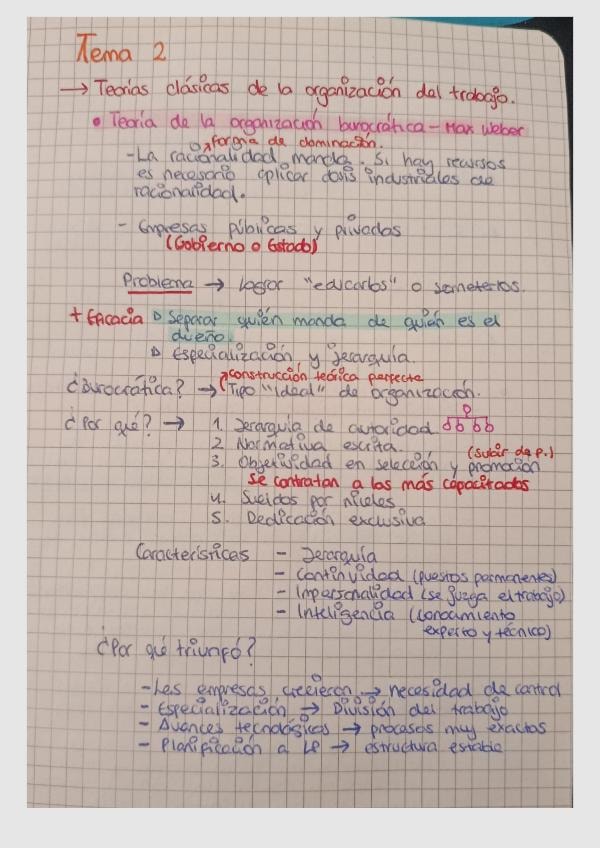 Tema 2
→ Teorías clásicas de la organización del trabajo.
• Teoría de la organización burocrática - Max Weber
↗forma de dominación.
- La racionalidad manda. Si hay recursos
es necesario aplicar dosis industriales de
racionalidad.
- Empresas públicas y privadas
(Gobierno o Estado)
Problema → lograr "educarlos" o someterlos.
+ Eficacia ▷ Separar quién manda de quién es el
dueño.
▷ Especialización y Jerarquía.
↗construcción teórica perfecta
¿Burocrática? → Tipo "ideal" de organización.
¿Por qué? → 1. Jerarquía de autoridad
2. Normativa escrita.
(subir de p.)
3. Objetividad en selección y promoción
se contratan a los más capacitados
4. Sueldos por niveles
5. Dedicación exclusiva
Características - Jerarquía
- Continuidad (puestos permanentes)
- Impersonalidad (se juzga el trabajo)
- Inteligencia (conocimiento
experto y técnico)
¿Por qué triunfó?
- Las empresas crecieron → necesidad de control
- Especialización → División del trabajo
- Avances tecnológicos → procesos muy exactos
- Planificación a LP → estructura estable